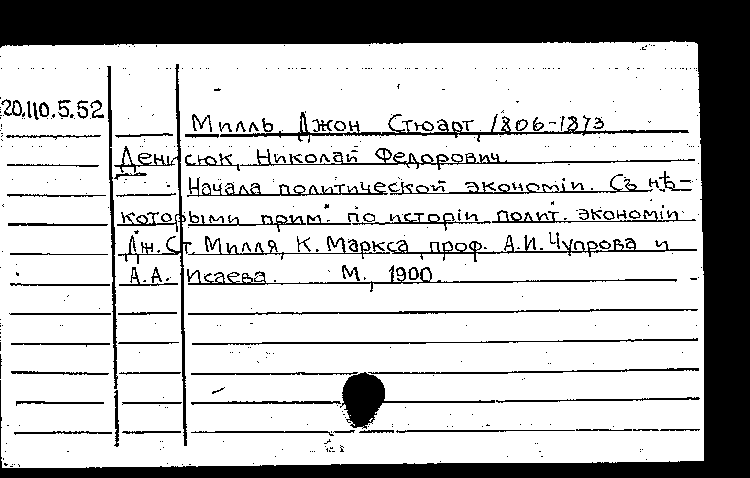 20.110.5.52
Милль, Джон Стюарт, 1806-1873
Денисюк, Николай Федорович.
Начала политической экономіи. Съ нѣ-
которыми прим. по исторіи полит. экономіи
Дж. Ст. Милля, К. Маркса, проф. А.И. Чупрова и
А.А. Исаева. М., 1900.